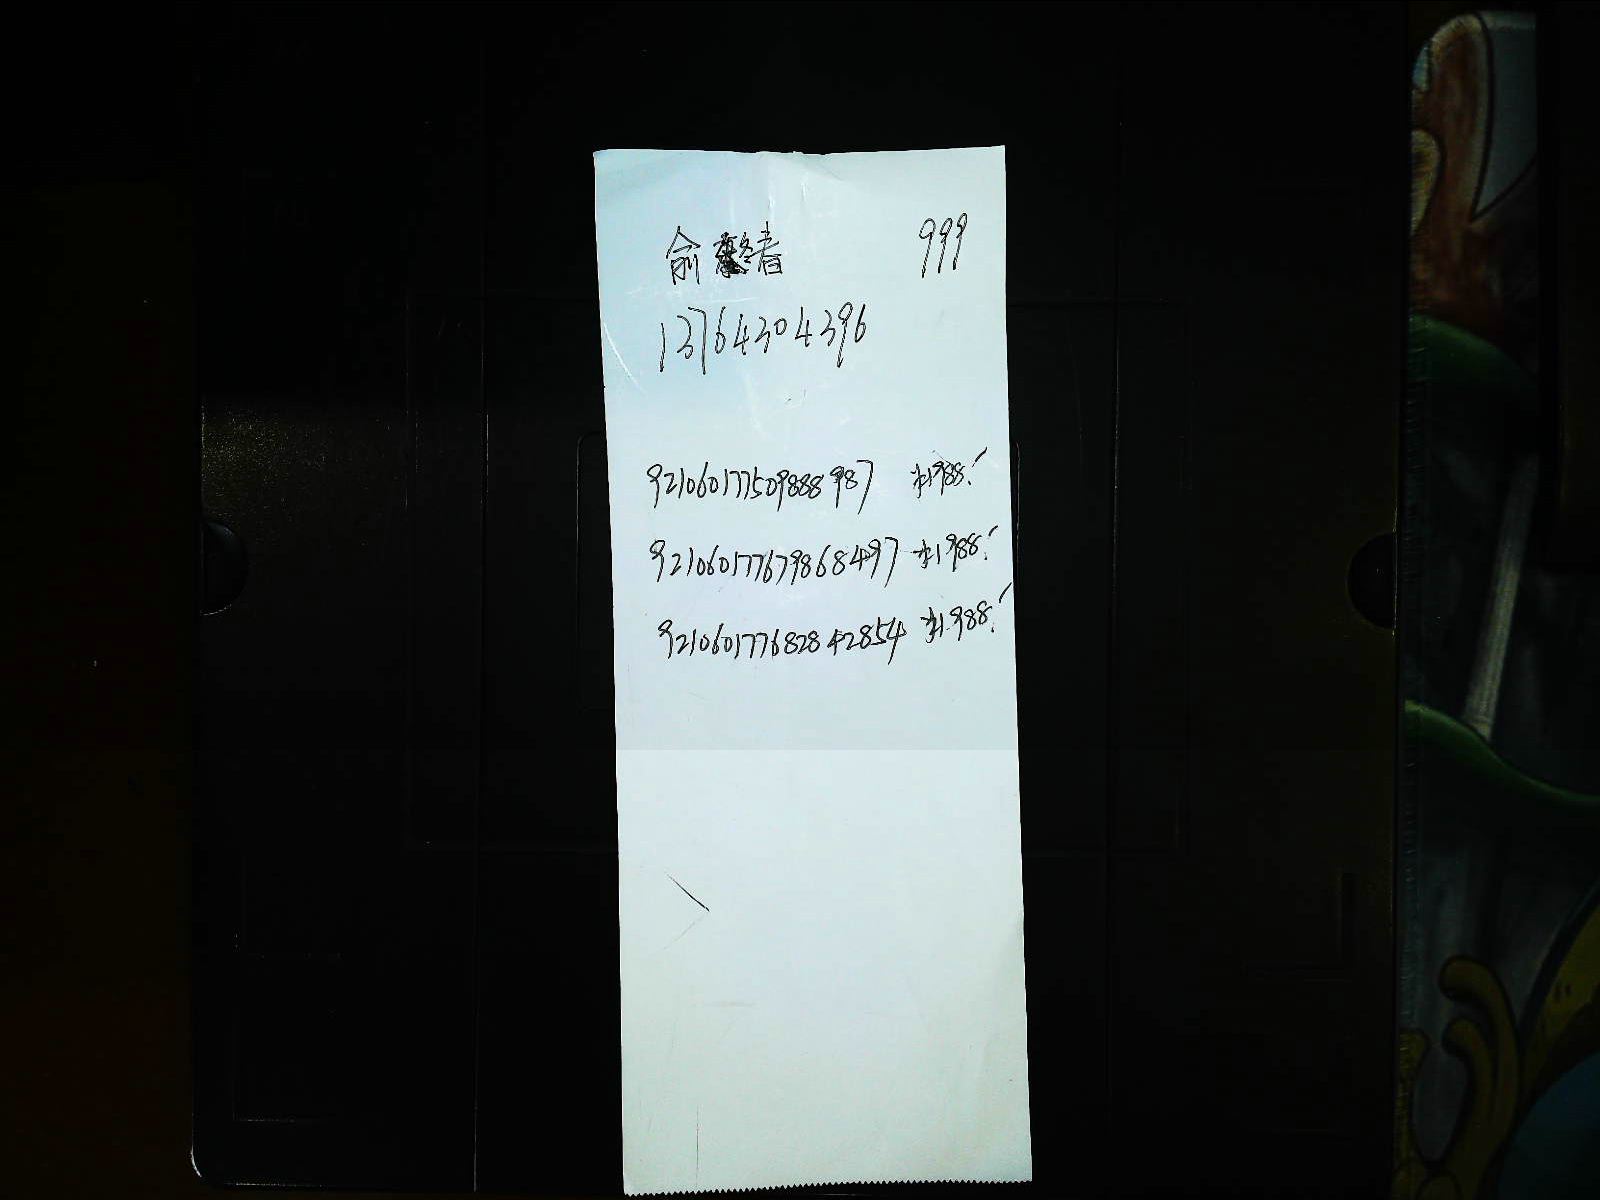 俞春 999
13764304396
921060177509888987 *1988.
921060177679868497 *1988.
921060177682842854 *1988.